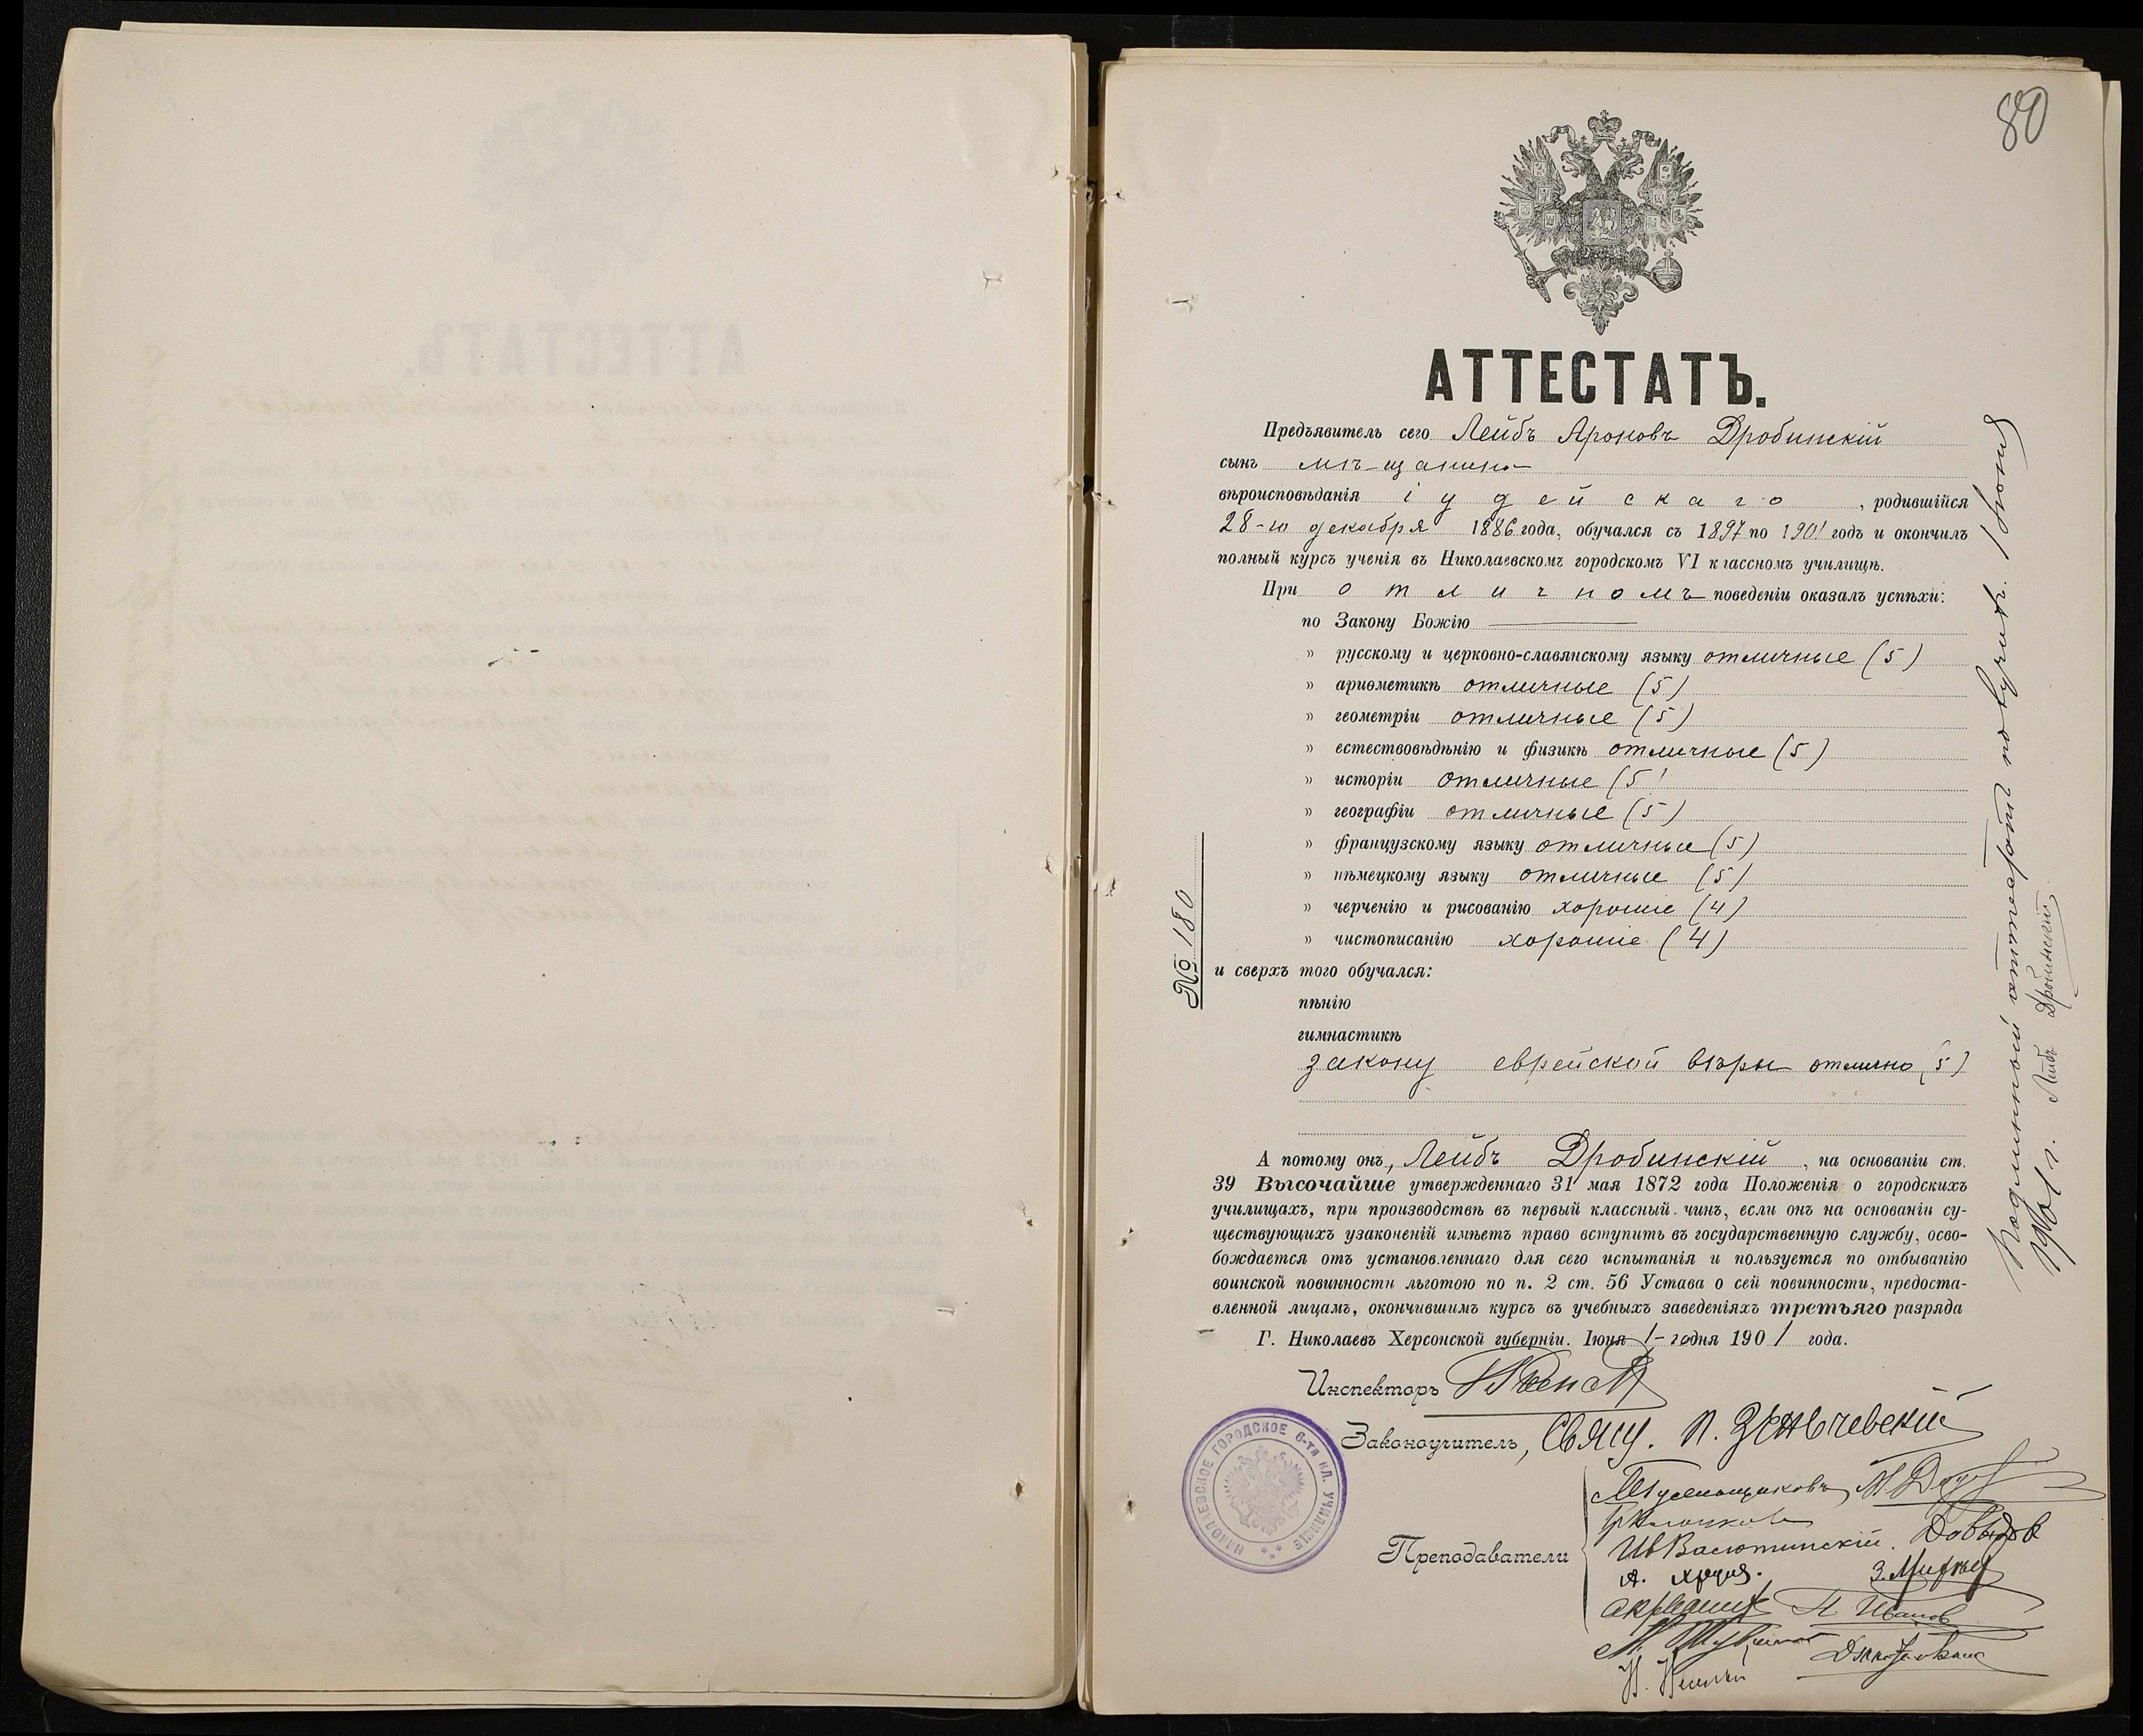 80
АТТЕСТАТЪ.
Предъявитель сего Лейбъ Ароновъ Дробинскій
сынъ мѣщанина
вѣроисповѣданія іудейскаго, родившійся
28-го декабря 1886 года, обучался съ 1897 по 1901 годъ и окончилъ
полный курсъ ученія въ Николаевскомъ городскомъ VI классномъ училищѣ.
При отличномъ поведеніи оказалъ успѣхи:
по Закону Божію ———
» русскому и церковно-славянскому языку отличные (5)
» ариѳметикѣ отличные (5)
» геометріи отличные (5)
» естествовѣдѣнію и физикѣ отличные (5)
» исторіи отличные (5)
» географіи отличные (5)
» французскому языку отличные (5)
» нѣмецкому языку отличные (5)
» черченію и рисованію хорошіе (4)
» чистописанію хорошіе (4)
и сверхъ того обучался:
пѣнію
гимнастикѣ
закону еврейской вѣры отлично (5)
А потому онъ, Лейбъ Дробинскій, на основаніи ст.
39 Высочайше утвержденнаго 31 мая 1872 года Положенія о городскихъ
училищахъ, при производствѣ въ первый классный чинъ, если онъ на основаніи су-
ществующихъ узаконеній имѣетъ право вступить въ государственную службу, осво-
бождается отъ установленнаго для сего испытанія и пользуется по отбыванію
воинской повинности льготою по п. 2 ст. 56 Устава о сей повинности, предоста-
вленной лицамъ, окончившимъ курсъ въ учебныхъ заведеніяхъ третьяго разряда
Г. Николаевъ Херсонской губерніи. Іюня 1-го дня 1901 года.
Инспекторъ
Законоучитель, Свящ. П.
Преподаватели
Ив Васютинскій. Довыдов
П Иванов
№ 180
НИКОЛАЕВСКОЕ ГОРОДСКОЕ 6-ТИ КЛ. УЧИЛИЩЕ
Подлинный аттестатъ получилъ 1 Іюня
1901 г. Лейбъ Дробинскій